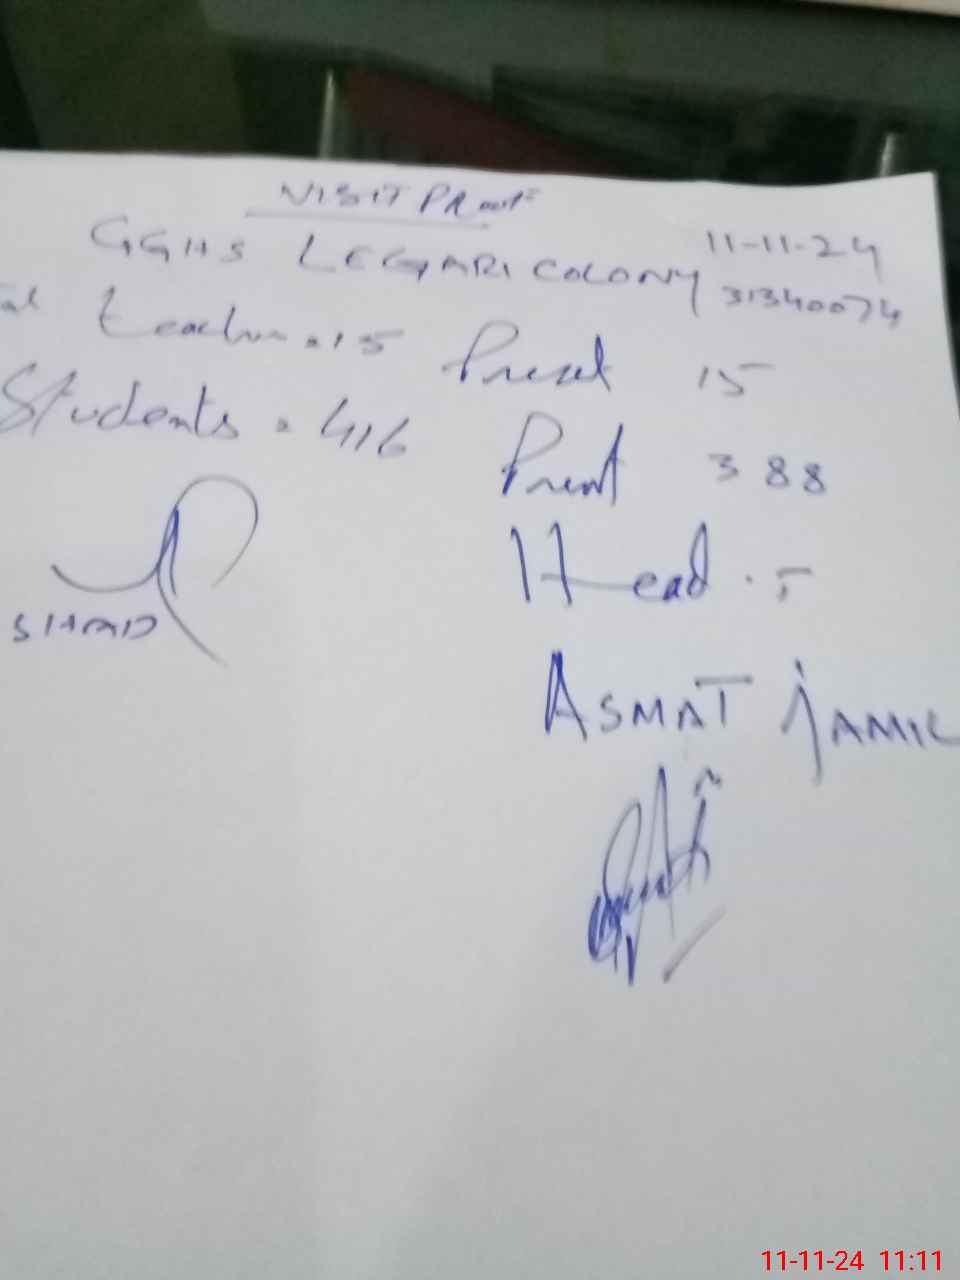 VISIT PROOF
GGHS LEGARI COLONY 11-11-24
31340074
teacher = 15 Present 15
Students = 416 Present 388
Head :-
SHAD
ASMAT JAMIL
11-11-24 11:11